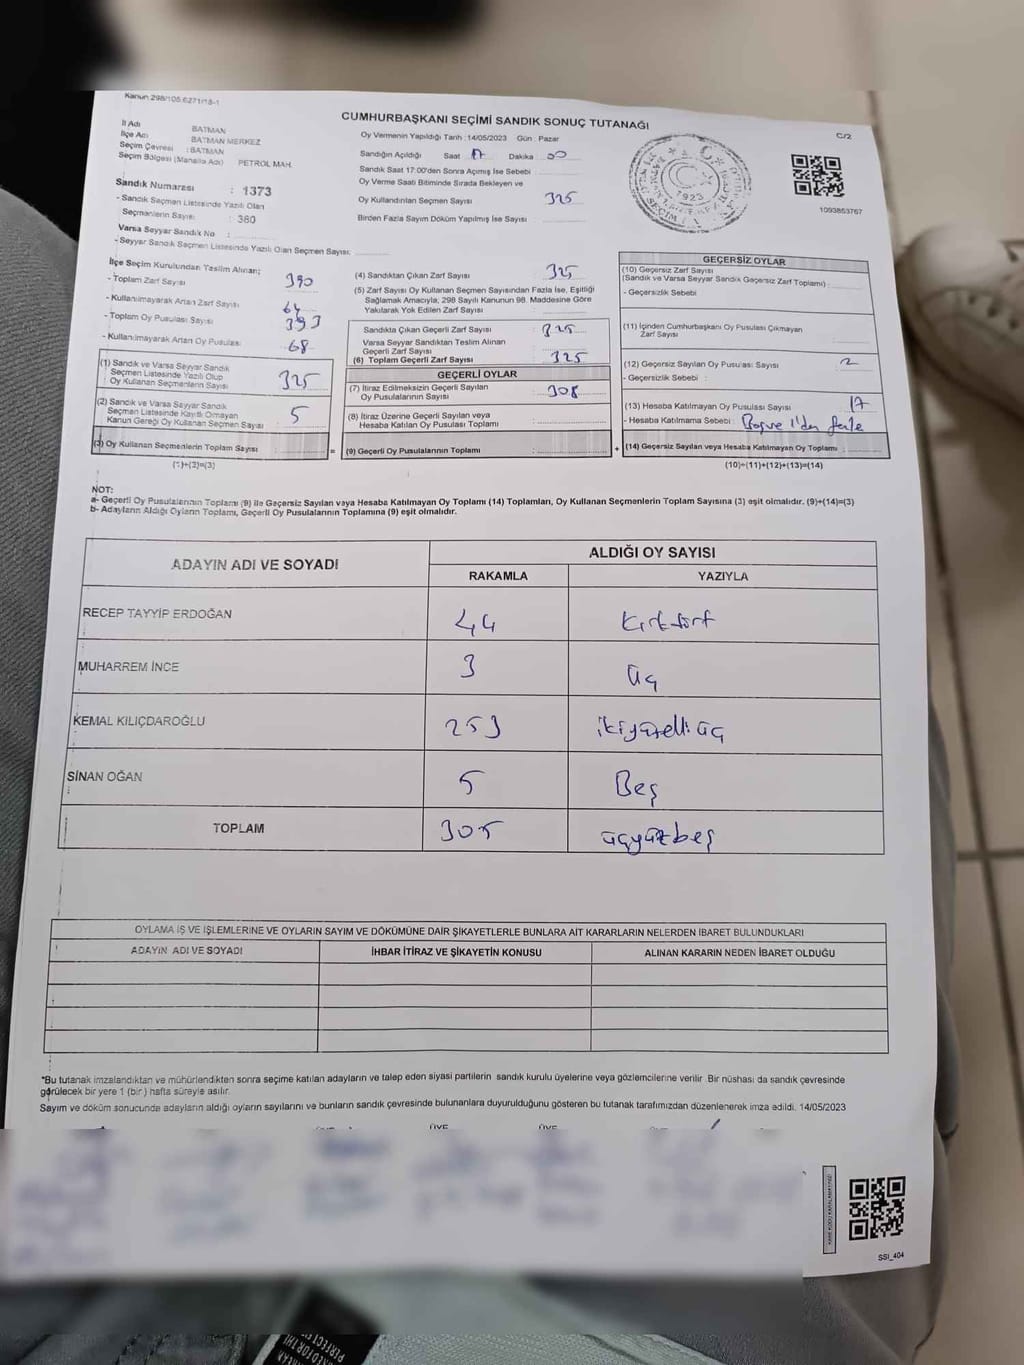 Kanun 298/105 6271/18-1
CUMHURBAŞKANI SEÇİMİ SANDIK SONUÇ TUTANAĞI
C/2
İl Adı BATMAN
İlçe Adı BATMAN MERKEZ
Seçim Çevresi : BATMAN
Seçim Bölgesi (Mahalle Adı) PETROL MAH.
Sandık Numarası : 1373
- Sandık Seçmen Listesinde Yazılı Olan
Seçmenlerin Sayısı : 380
Varsa Seyyar Sandık No :
- Seyyar Sandık Seçmen Listesinde Yazılı Olan Seçmen Sayısı:
Oy Vermenin Yapıldığı Tarih :14/05/2023 Gün : Pazar
Sandığın Açıldığı Saat 17 Dakika 00
Sandık Saat 17:00'den Sonra Açımış İse Sebebi
Oy Verme Saati Bitiminde Sırada Bekleyen ve
Oy Kullandırılan Seçmen Sayısı 325
Birden Fazla Sayım Döküm Yapılmış İse Sayısı
1923
1093853767
İlçe Seçim Kurulundan Teslim Alınan;
- Toplam Zarf Sayısı 390
- Kullanılmayarak Artan Zarf Sayısı
- Toplam Oy Pusulası Sayısı 393
- Kullanılmayarak Artan Oy Pusulası 68
(1) Sandık ve Varsa Seyyar Sandık
Seçmen Listesinde Yazılı Olup
Oy Kullanan Seçmenlerin Sayısı 325
(2) Sandık ve Varsa Seyyar Sandık
Seçmen Listesinde Kayıtlı Olmayan
Kanun Gereği Oy Kullanan Seçmen Sayısı 5
(3) Oy Kullanan Seçmenlerin Toplam Sayısı :
(1)+(2)=(3)
(4) Sandıktan Çıkan Zarf Sayısı 325
(5) Zarf Sayısı Oy Kullanan Seçmen Sayısından Fazla İse, Eşitliği
Sağlamak Amacıyla, 298 Sayılı Kanunun 98. Maddesine Göre
Yakılarak Yok Edilen Zarf Sayısı
Sandıkta Çıkan Geçerli Zarf Sayısı : 325
Varsa Seyyar Sandıktan Teslim Alınan
Geçerli Zarf Sayısı
(6) Toplam Geçerli Zarf Sayısı : 325
GEÇERLİ OYLAR
(7) İtiraz Edilmeksizin Geçerli Sayılan
Oy Pusulalarının Sayısı : 308
(8) İtiraz Üzerine Geçerli Sayılan veya
Hesaba Katılan Oy Pusulası Toplamı :
= (9) Geçerli Oy Pusulalarının Toplamı :
GEÇERSİZ OYLAR
(10) Geçersiz Zarf Sayısı
(Sandık ve Varsa Seyyar Sandık Geçersiz Zarf Toplamı) :
- Geçersizlik Sebebi
(11) İçinden Cumhurbaşkanı Oy Pusulası Çıkmayan
Zarf Sayısı
(12) Geçersiz Sayılan Oy Pusulası Sayısı 2
- Geçersizlik Sebebi :
(13) Hesaba Katılmayan Oy Pusulası Sayısı 17
- Hesaba Katılmama Sebebi :
+ (14) Geçersiz Sayılan veya Hesaba Katılmayan Oy Toplamı :
(10)+(11)+(12)+(13)=(14)
NOT:
a- Geçerli Oy Pusulalarının Toplamı (9) ile Geçersiz Sayılan veya Hesaba Katılmayan Oy Toplamı (14) Toplamları, Oy Kullanan Seçmenlerin Toplam Sayısına (3) eşit olmalıdır. (9)+(14)=(3)
b- Adayların Aldığı Oyların Toplamı, Geçerli Oy Pusulalarının Toplamına (9) eşit olmalıdır.
ADAYIN ADI VE SOYADI
ALDIĞI OY SAYISI
RAKAMLA YAZIYLA
RECEP TAYYİP ERDOĞAN 44 Kırkdört
MUHARREM İNCE 3 üç
KEMAL KILIÇDAROĞLU 253 ikiyüzelli üç
SİNAN OĞAN 5 Beş
TOPLAM 305 üçyüzbeş
OYLAMA İŞ VE İŞLEMLERİNE VE OYLARIN SAYIM VE DÖKÜMÜNE DAİR ŞİKAYETLERLE BUNLARA AİT KARARLARIN NELERDEN İBARET BULUNDUKLARI
ADAYIN ADI VE SOYADI İHBAR İTİRAZ VE ŞİKAYETİN KONUSU ALINAN KARARIN NEDEN İBARET OLDUĞU
*Bu tutanak imzalandıktan ve mühürlendikten sonra seçime katılan adayların ve talep eden siyasi partilerin sandık kurulu üyelerine veya gözlemcilerine verilir .Bir nüshası da sandık çevresinde
görülecek bir yere 1 (bir ) hafta süreyle asılır.
Sayım ve döküm sonucunda adayların aldığı oyların sayılarını ve bunların sandık çevresinde bulunanlara duyurulduğunu gösteren bu tutanak tarafımızdan düzenlenerek imza edildi. 14/05/2023
ÜYE ÜYE
SSI_404